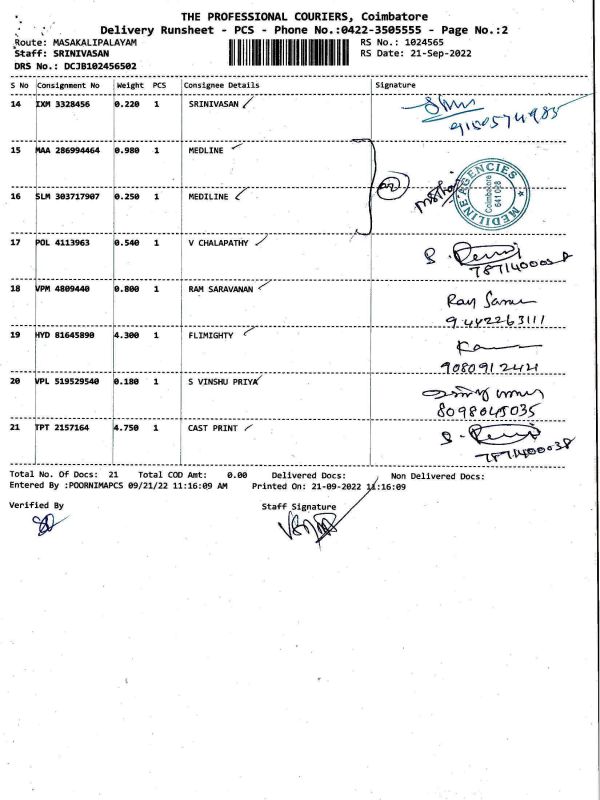 THE PROFESSIONAL COURIERS, Coimbatore
Delivery Runsheet - PCS - Phone No.:0422-3505555 - Page No.:2
Route: MASAKALIPALAYAM
RS No.: 1024565
Staff: SRINIVASAN
RS Date: 21-Sep-2022
DRS No.: DCJB102456502
S No Consignment No Weight PCS Consignee Details Signature
14 IXM 3328456 0.220 1 SRINIVASAN
15 MAA 286994464 0.980 1 MEDLINE
16 SLM 303717907 0.250 1 MEDILINE
MEDILINE AGENCIES
Coimbatore
641 028
17 POL 4113963 0.540 1 V CHALAPATHY
18 VPM 4809440 0.800 1 RAM SARAVANAN
9442263111
19 HYD 81645890 4.300 1 FLIMIGHTY
9080912421
20 VPL 519529540 0.180 1 S VINSHU PRIYA
8098045035
21 TPT 2157164 4.750 1 CAST PRINT
7871400038
Total No. Of Docs: 21 Total COD Amt: 0.00 Delivered Docs: Non Delivered Docs:
Entered By :POORNIMAPCS 09/21/22 11:16:09 AM Printed On: 21-09-2022 11:16:09
Verified By Staff Signature